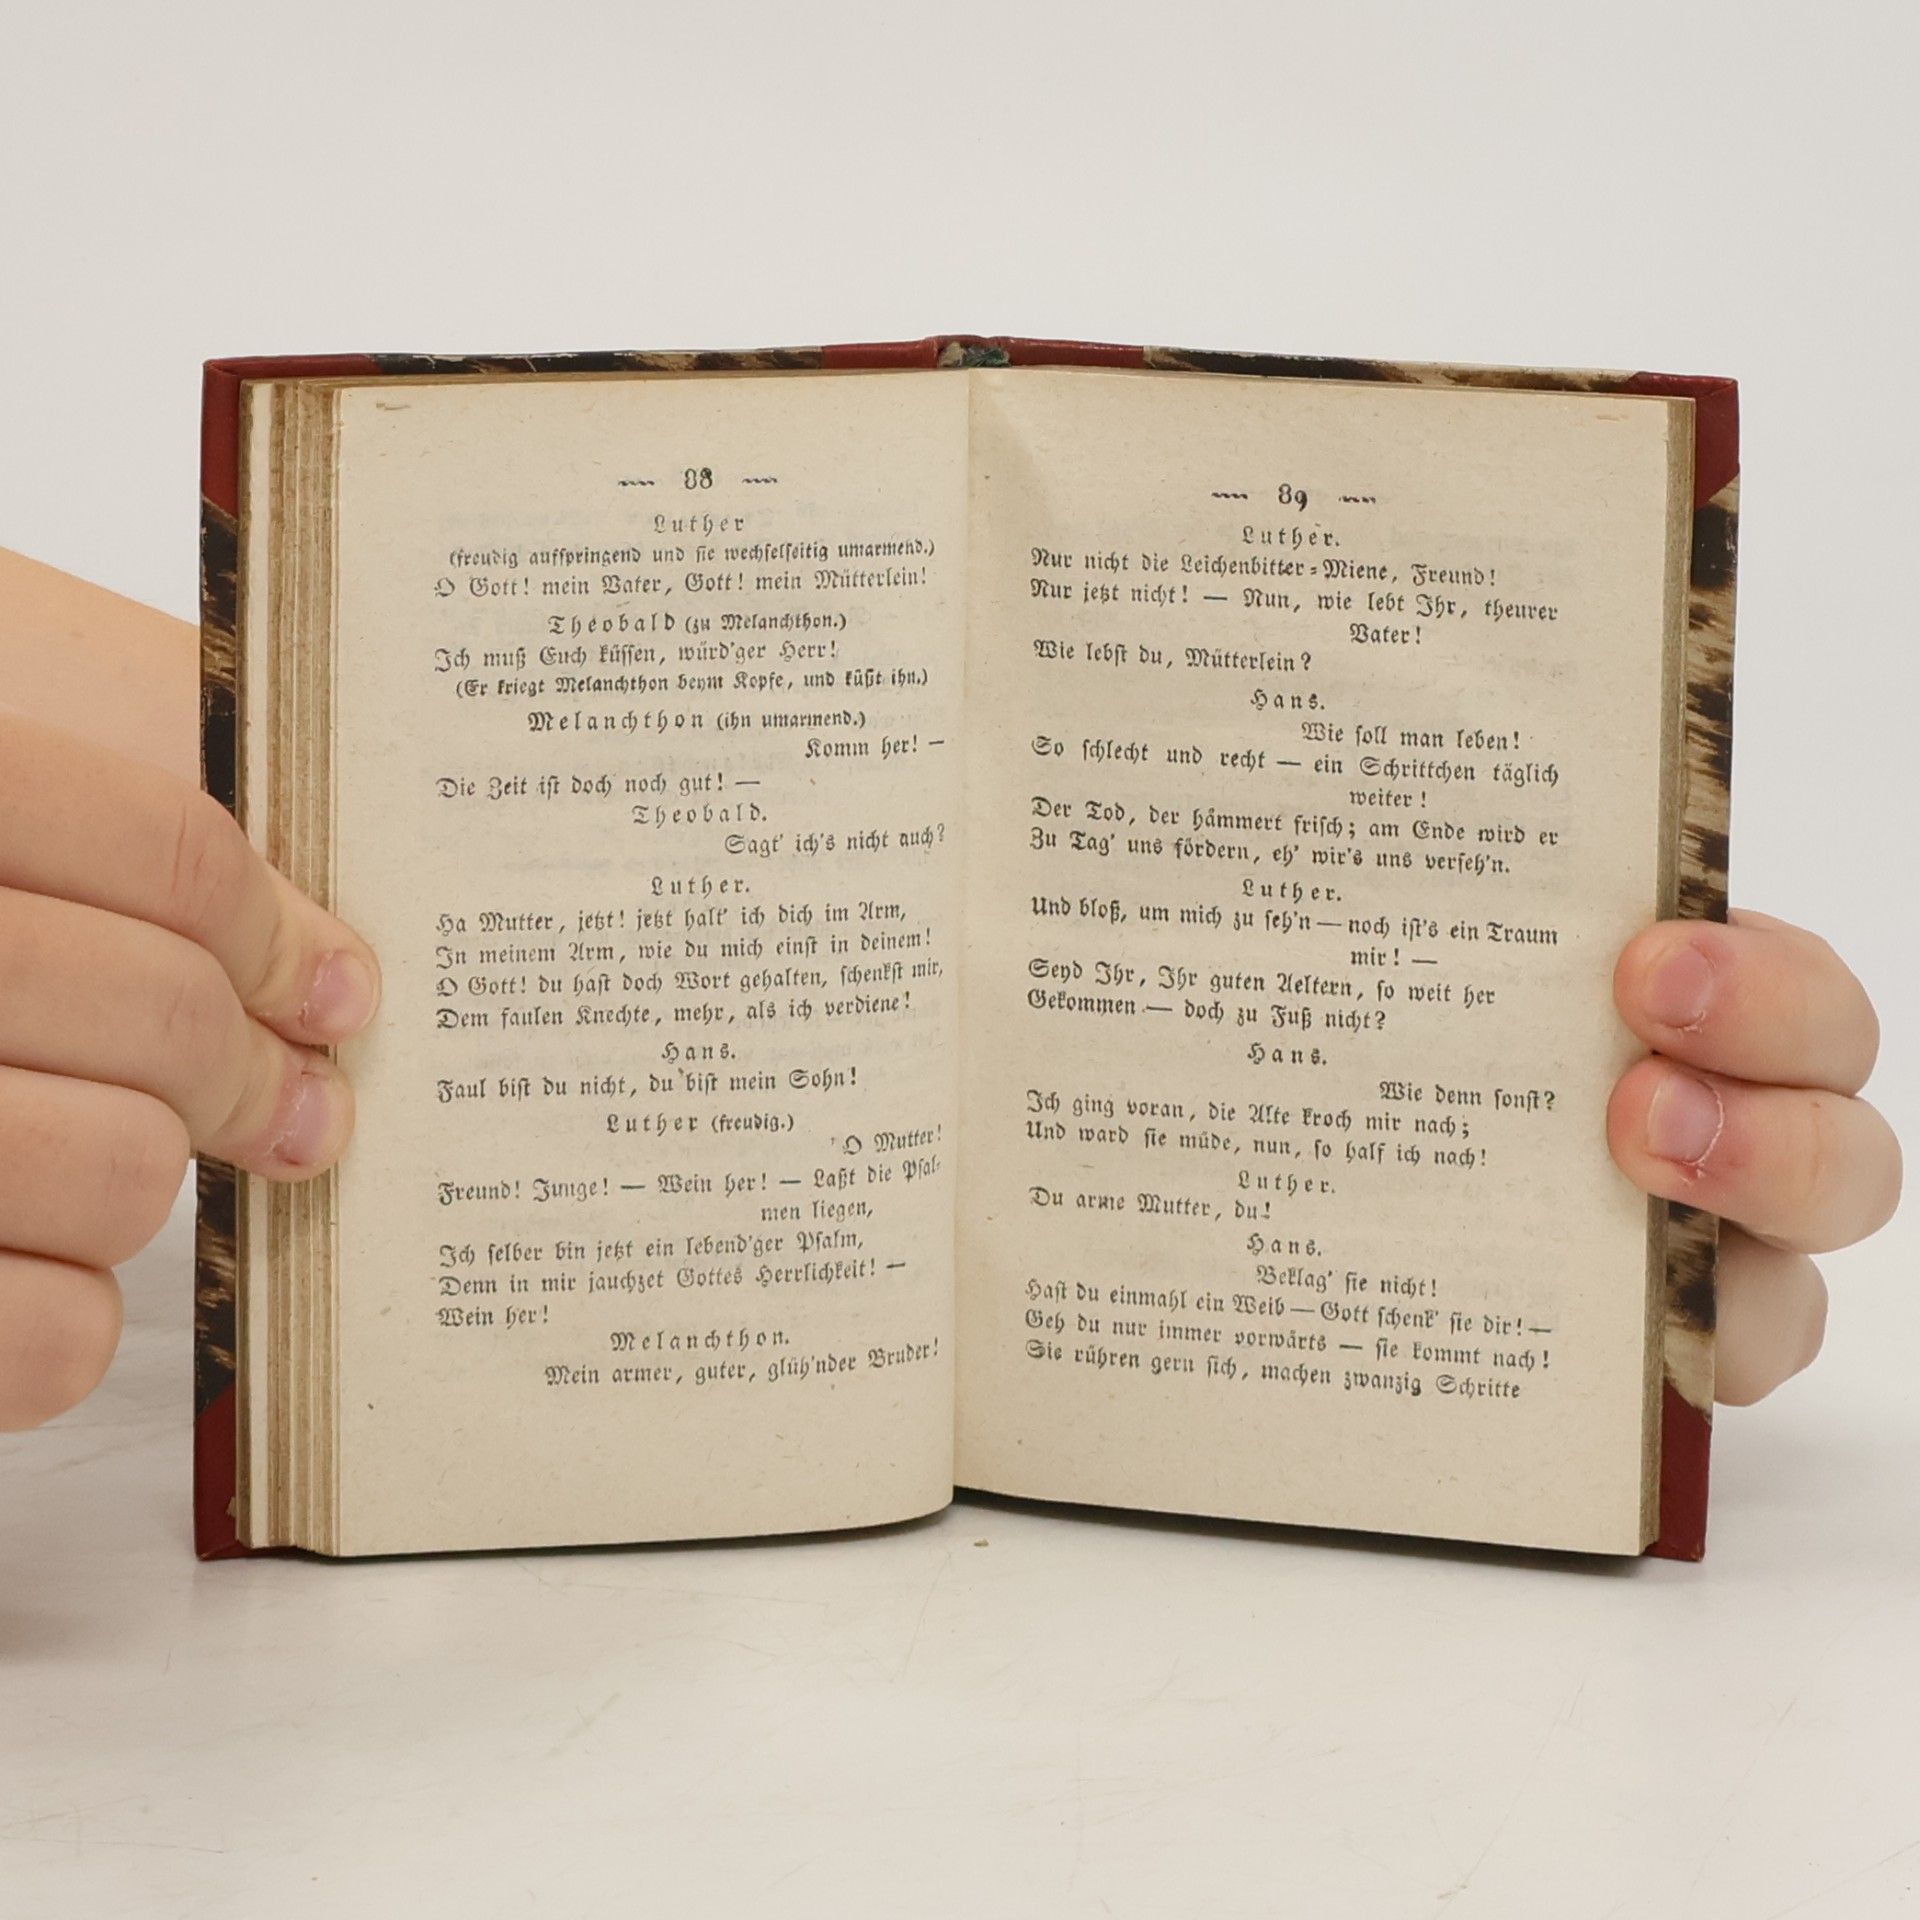 88
Luther
(freudig aufſpringend und ſie wechſelſeitig umarmend.)
O Gott! mein Vater, Gott! mein Mütterlein!
Theobald (zu Melanchthon.)
Ich muß Euch küſſen, würd'ger Herr!
(Er kriegt Melanchthon beym Kopfe, und küßt ihn.)
Melanchthon (ihn umarmend.)
Komm her! —
Die Zeit iſt doch noch gut! —
Theobald.
Sagt' ich's nicht auch?
Luther.
Ha Mutter, jetzt! jetzt halt' ich dich im Arm,
In meinem Arm, wie du mich einſt in deinem!
O Gott! du haſt doch Wort gehalten, ſchenkſt mir,
Dem faulen Knechte, mehr, als ich verdiene!
Hans.
Faul biſt du nicht, du biſt mein Sohn!
Luther (freudig.)
O Mutter!
Freund! Junge! — Wein her! — Laßt die Pſal-
men liegen,
Ich ſelber bin jetzt ein lebend'ger Pſalm,
Denn in mir jauchzet Gottes Herrlichkeit! —
Wein her!
Melanchthon.
Mein armer, guter, glüh'nder Bruder!
89
Luther.
Nur nicht die Leichenbitter-Miene, Freund!
Nur jetzt nicht! — Nun, wie lebt Ihr, theurer
Vater!
Wie lebſt du, Mütterlein?
Hans.
Wie ſoll man leben!
So ſchlecht und recht — ein Schrittchen täglich
weiter!
Der Tod, der hämmert friſch; am Ende wird er
Zu Tag' uns fördern, eh' wir's uns verſeh'n.
Luther.
Und bloß, um mich zu ſeh'n — noch iſt's ein Traum
mir! —
Seyd Ihr, Ihr guten Aeltern, ſo weit her
Gekommen — doch zu Fuß nicht?
Hans.
Wie denn ſonſt?
Ich ging voran, die Alte kroch mir nach;
Und ward ſie müde, nun, ſo half ich nach!
Luther.
Du arme Mutter, du!
Hans.
Beklag' ſie nicht!
Haſt du einmahl ein Weib — Gott ſchenk' ſie dir! —
Geh du nur immer vorwärts — ſie kommt nach!
Sie rühren gern ſich, machen zwanzig Schritte